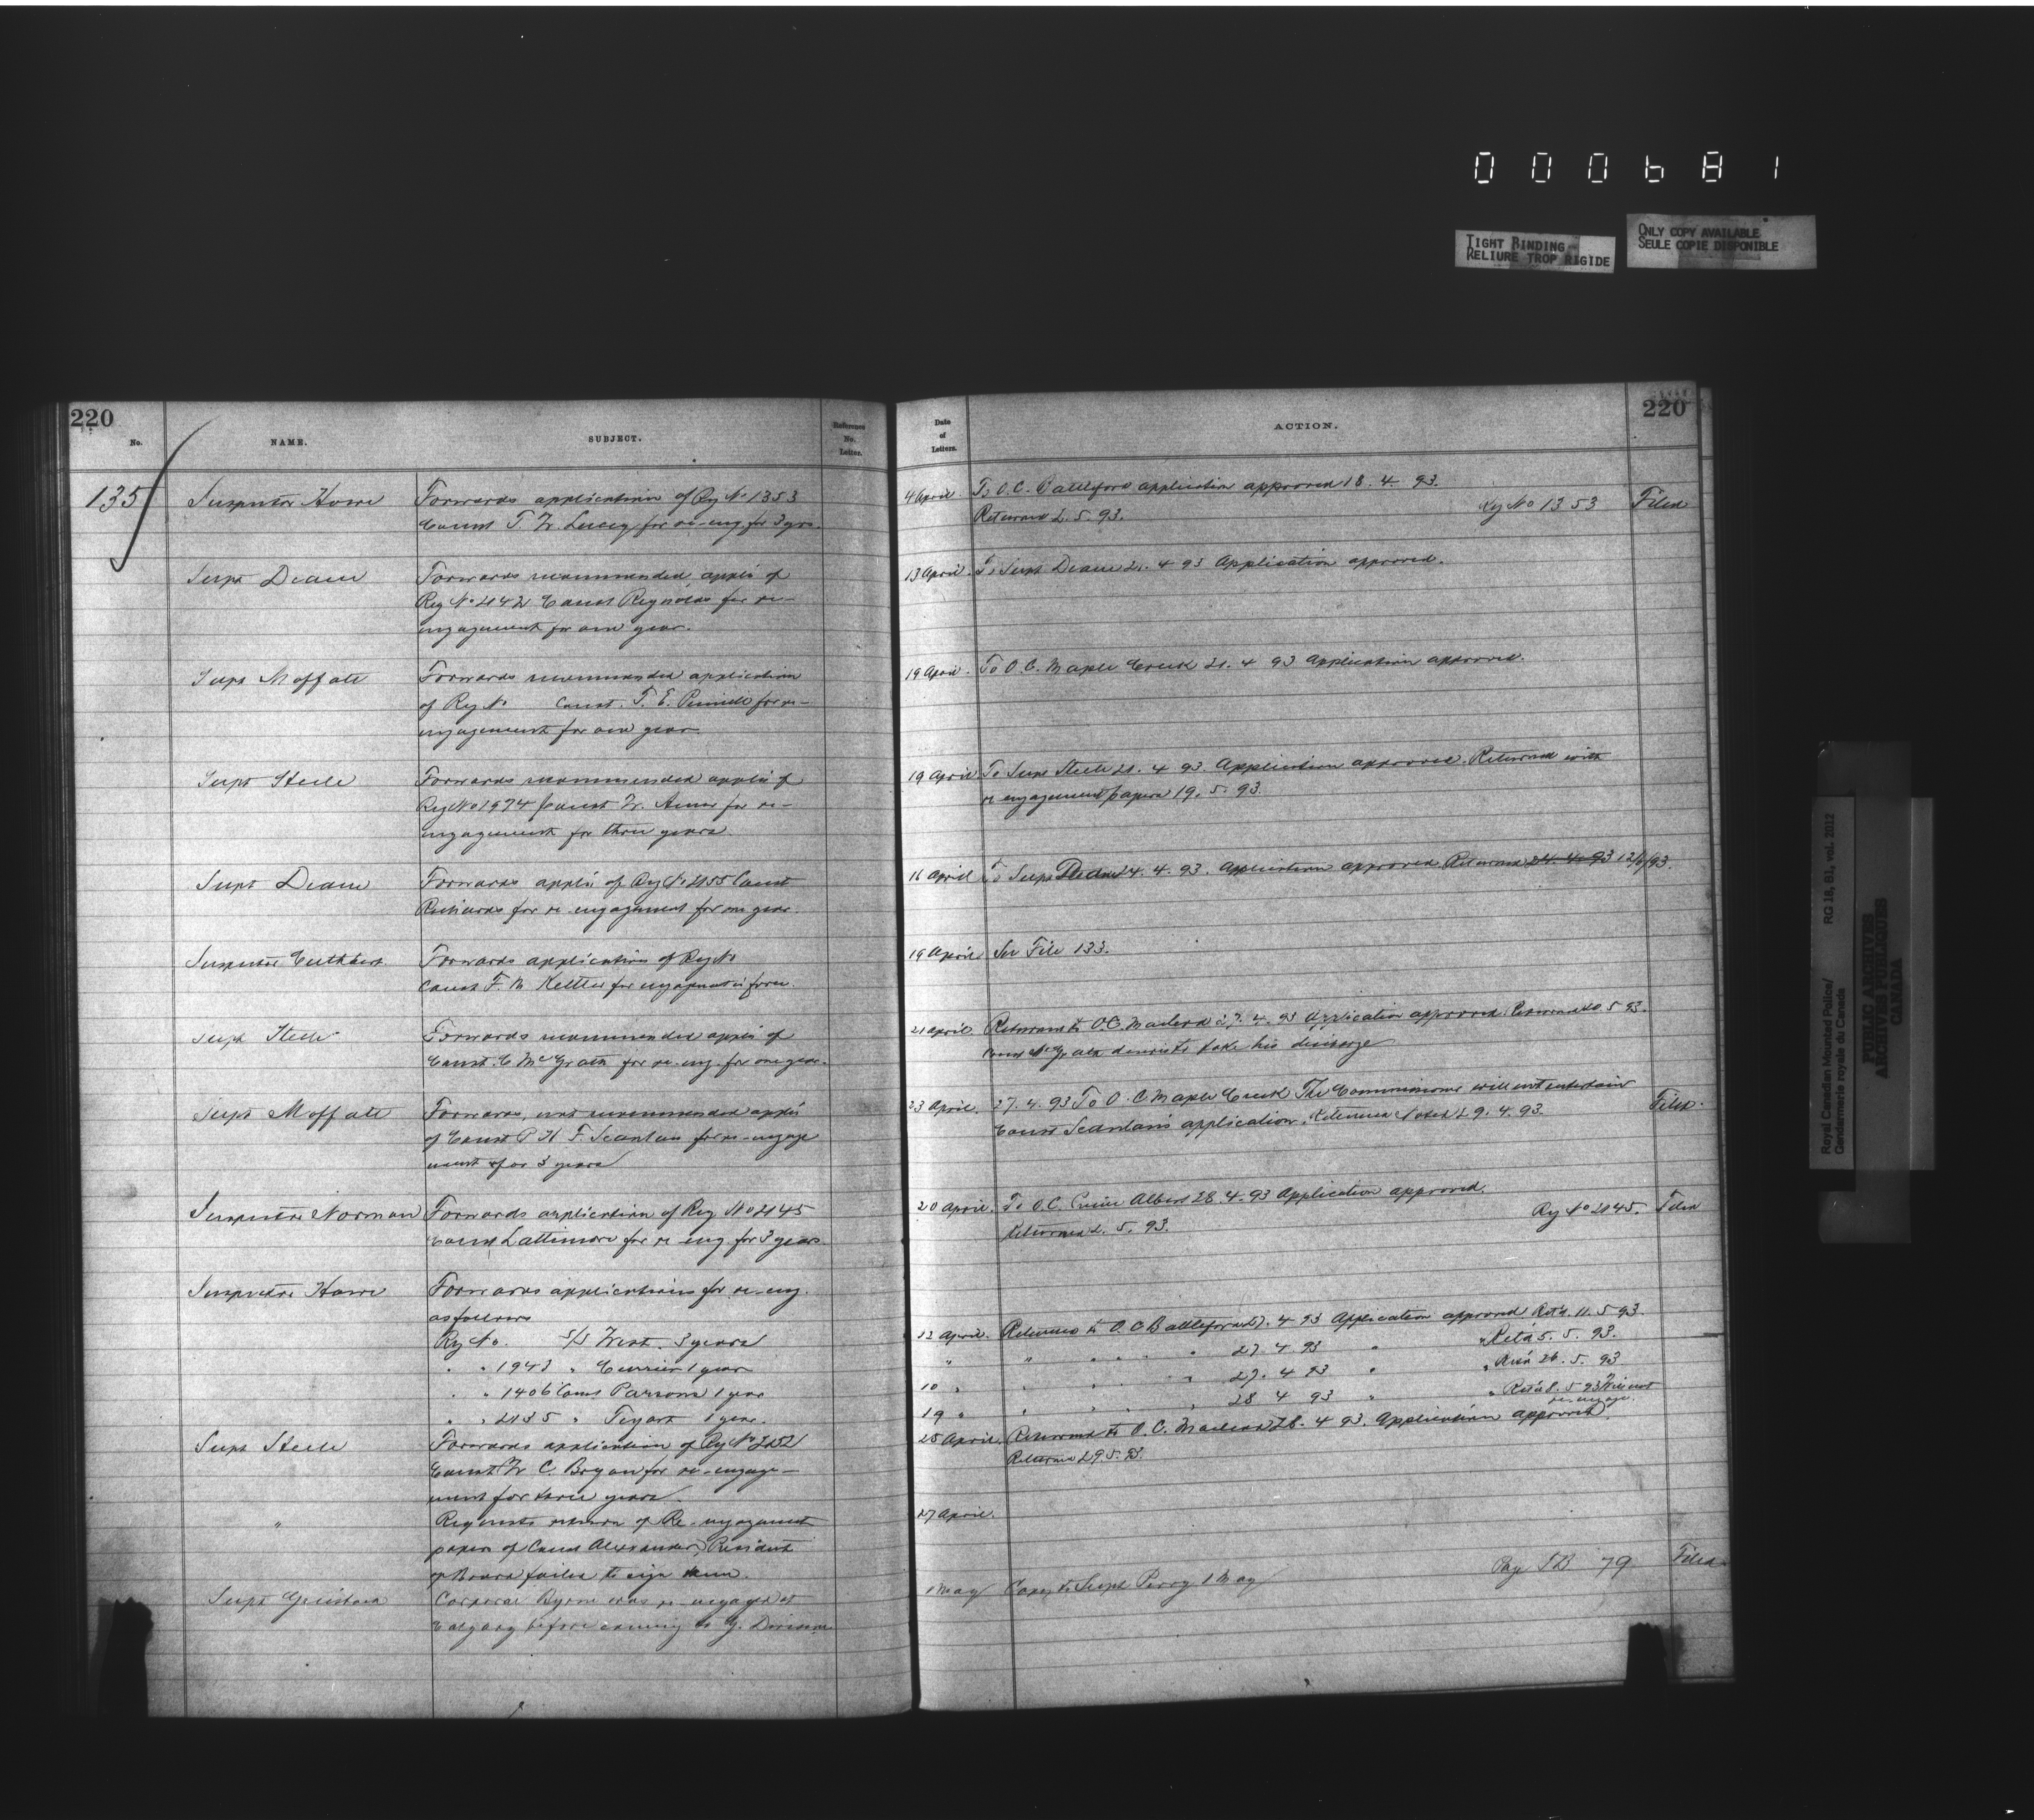 000681
TIGHT BINDING
RELIURE TROP RIGIDE
ONLY COPY AVAILABLE
SEULE COPIE DISPONIBLE
220
No.
NAME.
SUBJECT.
Reference
No.
Letter.
135
Inspector Howe
Forwards application of Reg No 1353
Const T. W. Lucey for re-eng for 3 yrs.
Supt Deane
Forwards recommended appln of
Reg No 2142 Const Reynolds for re-
engagement for one year.
Supt Moffatt
Forwards recommended application
of Reg No Const. T. E. for re-
engagement for one year.
Supt Steele
Forwards recommended appln of
Reg No 1974 Const W. for re-
engagement for three years
Supt Deane
Forwards appln of Reg No 2155 Const
Richards for re engagement for one year.
Inspector Cuthbert
Forwards application of Reg No
Const F. M. for
Supt Steele
Forwards recommended appln of
Const. C McGrath for re. eng. for one year.
Supt Moffatt
Forwards, not recommended appln
of Const P H F. Scanlan for re-engage
ment for 3 years
Inspector Norman
Forwards application of Reg No 2145
Const Lattimore for re eng. for 3 years
Inspector Howe
Forwards applications for re-eng.
as follows
Reg No. S/S West. 3 years
" " 1943 " Currier 1 year
" " 1406 Const Parsons 1 year
" " 2135 " 1 year.
Supt Steele
Forwards application of Reg No 2152
Const W C. Bryan for re-engage-
ment for three years.
"
Requests return of Re-engagement
papers of Const Alexander, President
of Board failed to sign them.
Supt Griesbach
Corporal Byrne was re-engaged at
Calgary before coming to G. Division
220
Date
of
Letters.
ACTION.
4 April To O.C. Battleford application approved 18. 4. 93.
Returned 2. 5. 93. Reg No 1353 Filed
13 April. To Supt Deane 21. 4 93 Application approved.
19 April. To O.C. Maple Creek 21. 4 93 Application approved.
19 April To Supt Steele 21. 4 93. Application approved. Returned with
re engagement papers 19. 5. 93.
16 April To Supt Deane 24. 4. 93. Application approved Returned 24. 4. 93 12/6/93
19 April See File 133.
21 April. Returned to O.C. Macleod 27. 4. 93 Application approved. Returned 5 93.
Const McGrath desires to take his discharge
23 April. 27. 4. 93 To O. C Maple Creek The Commissioner will not entertain
Const Scanlan's application. Returned Noted 29. 4. 93. Filed.
20 April. To O.C. Prince Albert 28. 4. 93 Application approved.
Returned 2. 5. 93. Reg No 2145. Filed
12 April. Returned to O. C Battleford 27. 4 93 Application approved Ret'd. 11. 5 93.
" " " " 27. 4 93 " " Ret'd 5. 5. 93.
10 " " " 27. 4 93 " " Ret'd 26. 5. 93
19 " " " 28 4 93 " " Ret'd 8. 5 93 Will not
re-engage.
25 April. Returned to O. C. Macleod 28. 4 93. Application approved.
Returned 29 5. 93.
27 April.
1 May Copy to Supt Perry 1 May Page 79 Filed.
Royal Canadian Mounted Police/
Gendarmerie royale du Canada
RG 18, B1, vol. 2012
PUBLIC ARCHIVES
ARCHIVES PUBLIQUES
CANADA